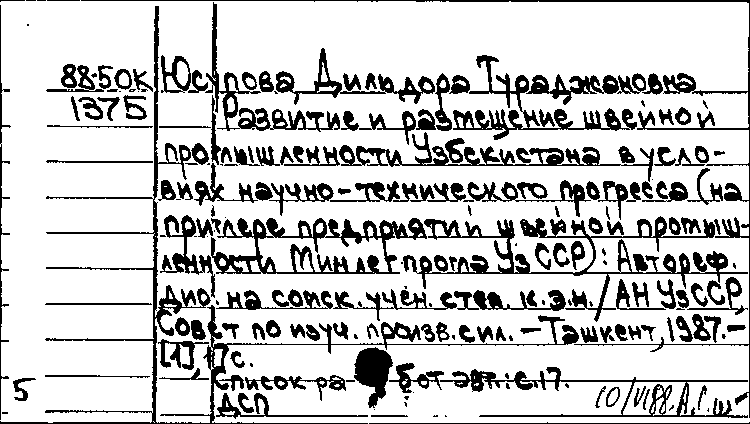 88-50К Юсупова, Дильдора Тураджановна.
1375 Развитие и размещение швейной
промышленности Узбекистана в усло-
виях научно-технического прогресса (на
примере предприятий швейной промыш-
ленности Минлегпрома УзССР): Автореф.
дис. на соиск. учен. степ. к.э.н. / АН УзССР,
Совет по изуч. произв. сил. - Ташкент, 1987. -
[1], 17с.
Список работ авт.: с.17.
5 ДСП 10/VI88.